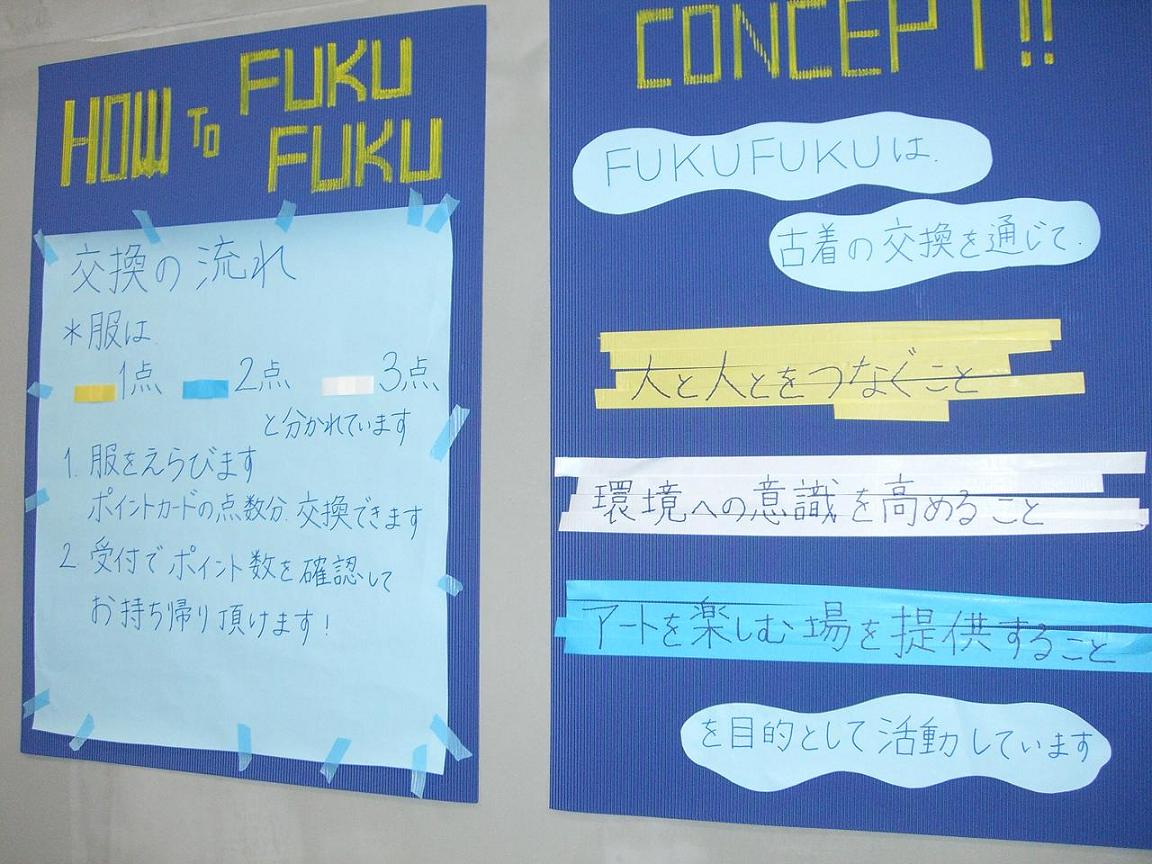 HOW TO FUKU
FUKU
交換の流れ
*服は
1点、2点、3点、
と分かれています
1. 服をえらびます
ポイントカードの点数分、交換できます
2. 受付でポイント数を確認して
お持ち帰り頂けます!
CONCEPT!!
FUKUFUKUは、
古着の交換を通じて、
人と人とをつなぐこと
環境への意識を高めること
アートを楽しむ場を提供すること
を目的として活動しています